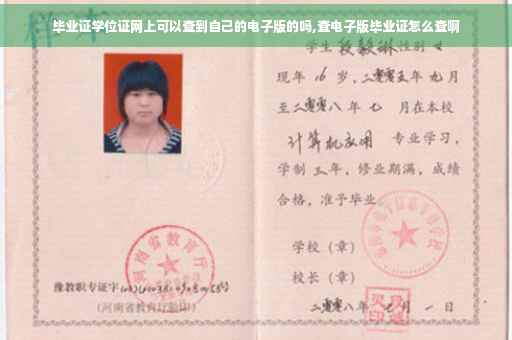 毕业证学位证网上可以查到自己的电子版的吗,查电子版毕业证怎么查啊
样本
学生 段毅琳 性别 女
现年 16 岁，二零零五年 九月
至二零零八年 七 月在本校
计算机应用 专业学习，
学制 三 年，修业期满，成绩
合格，准予毕业。
学校（章）
校长（章）
豫教职专证字
(河南省教育厅验印)
二零零八年 七 月 一 日
河南省教育厅